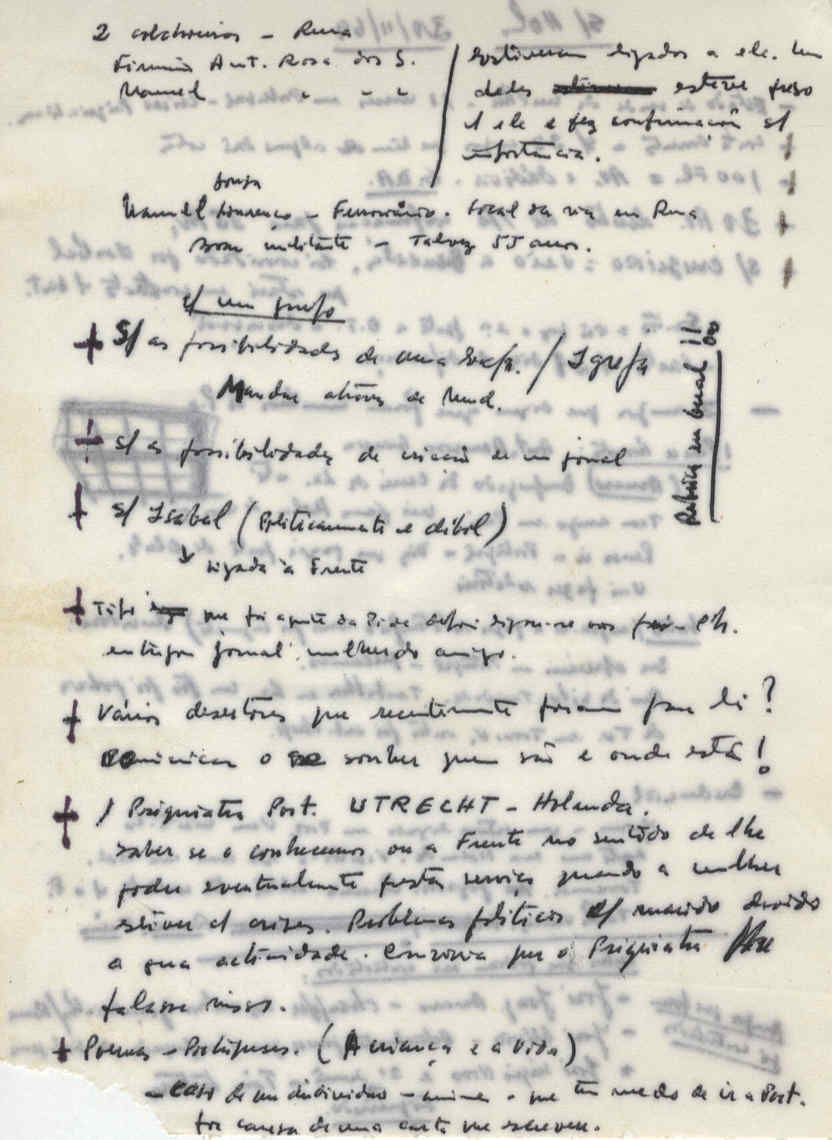 2 colchoeiros - Runa
Firmino Ant. Rosa dos S.
Manuel " " "
Estiveram ligados a ele. Um
deles esteve preso
c/ ele e fez confirmação s/
importância.
Souza
Manuel Lourenço - Ferroviário. Local da via em Runa
Bom militante - Talvez 55 anos.
s/ um grupo
+ S/ as possibilidades de uma / Igreja
Mandar através de
+ s/ as possibilidades de criação de um jornal
Rubrica em Bunal !!
+ S/ Isabel (Politicamente é débil)
ligada à Frente
+ Tipo que foi agente da Pide
entregou jornal mulher do amigo.
+ Vários desertores que recentemente foram para lá?
Comunicar o se souber quem são e onde está!
+ / Psiquiatra Port. UTRECHT - Holanda.
Saber se o conhecemos ou a Frente no sentido de lhe
poder eventualmente prestar serviço quando a mulher
estiver c/ crises. Problemas políticos c/ marido devido
a sua actividade. Conviria que o Psiquiatra lhe
falasse nisso.
+ Poemas - Portugueses. (A criança e a vida)
- Caso de um individuo - - que tem medo de ir a Port.
por causa de uma carta que escreveu.